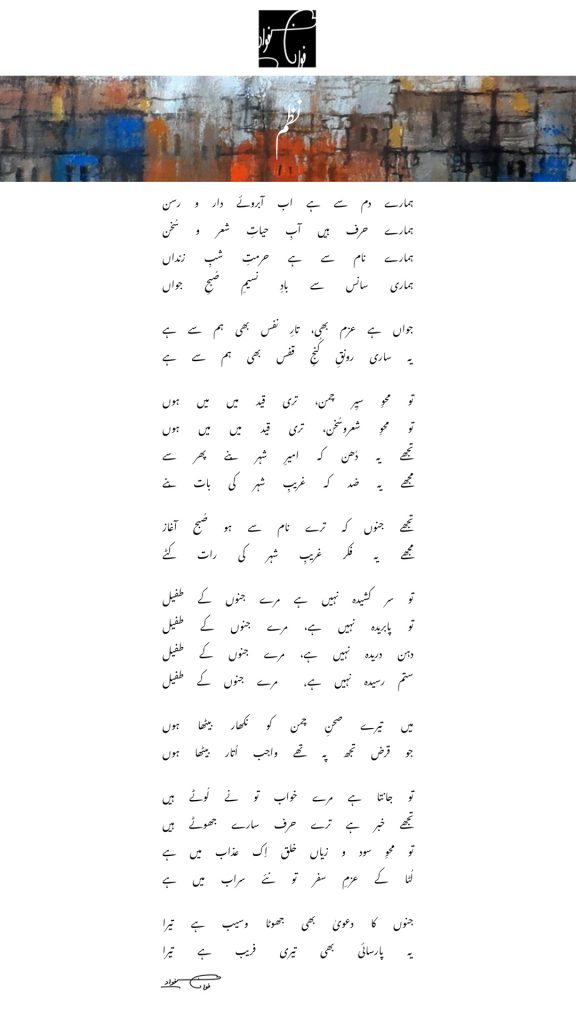 فواد
نظم
ہمارے دم سے ہے اب آبروئے دار و رسن
ہمارے حرف ہیں آبِ حیاتِ شعر و سُخن
ہمارے نام سے ہے حرمتِ شبِ زنداں
ہماری سانس سے بادِ نسیمِ صُبحِ جواں
جواں ہے عزم بھی، تارِ نفس بھی ہم سے ہے
یہ ساری رونقِ کُنجِ قفس بھی ہم سے ہے
تو محوِ سیرِ چمن، تری قید میں میں ہوں
تو محوِ شعروسُخن، تری قید میں میں ہوں
تجھے یہ دُھن کہ امیرِ شہر بنے پھر سے
مجھے یہ ضد کہ غریبِ شہر کی بات بنے
تجھے جنوں کہ ترے نام سے ہو صُبح آغاز
مجھے یہ فکر غریبِ شہر کی رات کٹے
تو سر کشیدہ نہیں ہے مرے جنوں کے طفیل
تو پابریدہ نہیں ہے، مرے جنوں کے طفیل
دہن دریدہ نہیں ہے، مرے جنوں کے طفیل
ستم رسیدہ نہیں ہے، مرے جنوں کے طفیل
میں تیرے صحنِ چمن کو نکھار بیٹھا ہوں
جو قرض تجھ پہ تھے واجب اُتار بیٹھا ہوں
تو جانتا ہے مرے خواب تو نے لُوٹے ہیں
تجھے خبر ہے ترے حرف سارے جھوٹے ہیں
تو محوِ سود و زیاں خلق اِک عذاب میں ہے
لُٹا کے عزمِ سفر تو نئے سراب میں ہے
جنوں کا دعویٰ بھی جھوٹا وسیب ہے تیرا
یہ پارسائی بھی تیری فریب ہے تیرا
فواد